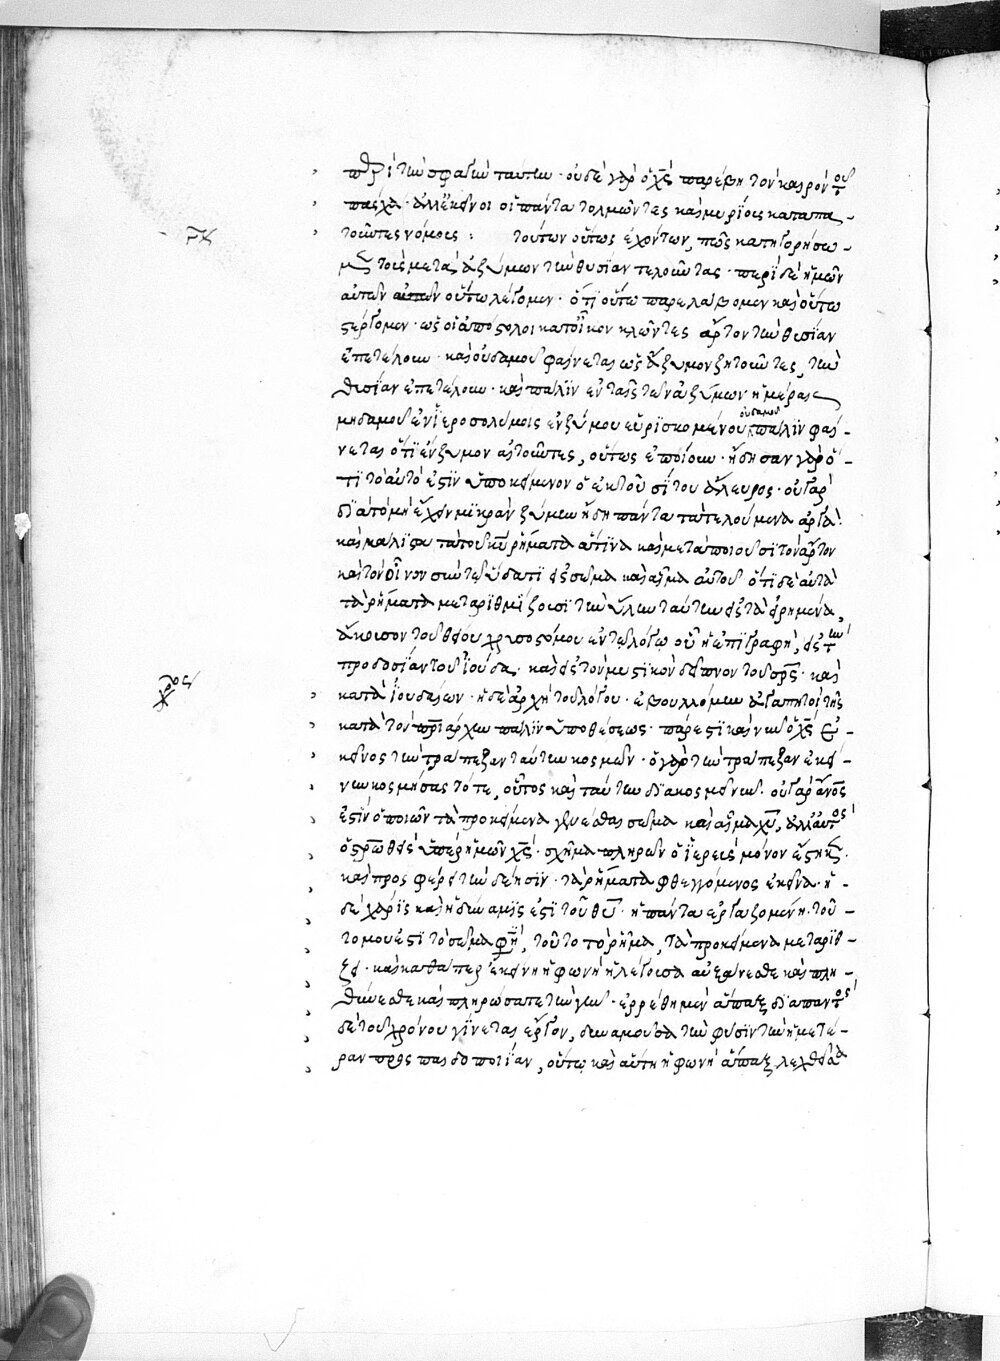 περὶ τὴν σφαγὴν ταύτην · οὐδὲ γὰρ ὁ χ̅ς̅ παρέβη τὸν καιρὸν τοῦ
πάσχα · ἀλλ' ἐκεῖνοι οἱ πάντα τολμῶντες καὶ μυρίους καταπα-
τοῦντες νόμους : τούτων οὕτως ἐχόντων, πῶς κατηγορήσω-
μεν τοὺς μετὰ ἀζύμων τὴν θυσίαν τελοῦντας · περὶ δὲ ἡμῶν
αὐτῶν οὕτω λέγομεν · ὅτι οὕτω παρελάβομεν καὶ οὕτω
στέργομεν · ὡς οἱ ἀπόστολοι κατ' οἶκον κλῶντες ἄρτον τὴν θυσίαν
ἐπετέλουν · καὶ οὐδαμοῦ φαίνεται ὡς ἄζυμον ζητοῦντες, τὴν
θυσίαν ἐπετέλουν · καὶ πάλιν ἐν ταῖς τῶν ἀζύμων ἡμέραις
μηδαμοῦ ἐν ἱεροσολύμοις ἐνζύμου εὑρισκομένου οὐδαμοῦ πάλιν φαί-
νεται ὅτι ἔνζυμον αἰτοῦντες, οὕτως ἐποίουν · ᾔδησαν γὰρ ὅ-
τι τὸ αὐτό ἐστιν ὑποκείμενον ὁ ἐκ τοῦ σίτου ἄλευρος · οὐ γὰρ
διὰ τὸ μὴ ἔχειν μικρὰν ζύμην ἤδη πάντα τὰ τελούμενα ἀργά ·
καὶ μάλιστα τὰ τοῦ κ̅υ̅ ῥήματα ἅτινα καὶ μεταποιοῦσι τὸν ἄρτον
καὶ τὸν οἶνον σὺν τῷ ὕδατι εἰς σῶμα καὶ αἷμα αὐτοῦ ὅτι δὲ αὐτὰ
τὰ ῥήματα μεταρυθμίζουσι τὴν ὕλην ταύτην εἰς τὰ εἰρημένα,
ἄκουσον τοῦ θείου χρυσοστόμου ἐν τῷ λόγῳ οὗ ἡ ἐπιγραφή, εἰς τὴν
προδοσίαν τοῦ ἰούδα · καὶ εἰς τὸν μυστικὸν δεῖπνον τοῦ σ̅ρ̅ς̅ · καὶ
κατὰ ἰουδαίων · ἡ δὲ ἀρχὴ τοῦ λόγου · ἐβουλόμην ἀγαπητοὶ τῆς
κατὰ τὸν π̅ριάρχην πάλιν ὑποθέσεως · πάρεστι καὶ νῦν ὁ χ̅ς̅ ἐ-
κεῖνος τὴν τράπεζαν ταύτην κοσμῶν · ὁ γὰρ τὴν τράπεζαν ἐκεί-
νην κοσμήσας τότε, οὗτος καὶ ταύτην διακοσμεῖ νῦν · οὐ γὰρ ἄ̅ν̅ο̅ς̅
ἐστὶν ὁ ποιῶν τὰ προκείμενα γενέσθαι σῶμα καὶ αἷμα χ̅υ̅, ἀλλ' αὐτὸς
ὁ σ̅ρ̅ω̅θεὶς ὑπὲρ ἡμῶν χ̅ς̅ · σχῆμα πληρῶν ὁ ἱερεὺς μόνον ἕστηκε ·
καὶ προσφέρει τὴν δέησιν · τὰ ῥήματα φθεγγόμενος ἐκεῖνα · ἡ
δὲ χάρις καὶ ἡ δύναμίς ἐστι τοῦ θ̅υ̅ · ἡ πάντα ἐργαζομένη · τοῦ-
τό μου ἐστὶ τὸ σῶμα φησί, τοῦτο τὸ ῥῆμα, τὰ προκείμενα μεταρυθμί-
ζει · καὶ καθάπερ ἐκείνη ἡ φωνὴ ἡ λέγουσα αὐξάνεσθε καὶ πλη-
θύνεσθε καὶ πληρώσατε τὴν γῆν · ἐρρέθη μὲν ἅπαξ διὰ παντὸς
δὲ τοῦ χρόνου γίνεται ἔργον, δυναμοῦσα τὴν φύσιν τὴν ἡμετέ-
ραν πρὸς παιδοποιίαν, οὕτω καὶ αὕτη ἡ φωνὴ ἅπαξ λεχθεῖσα